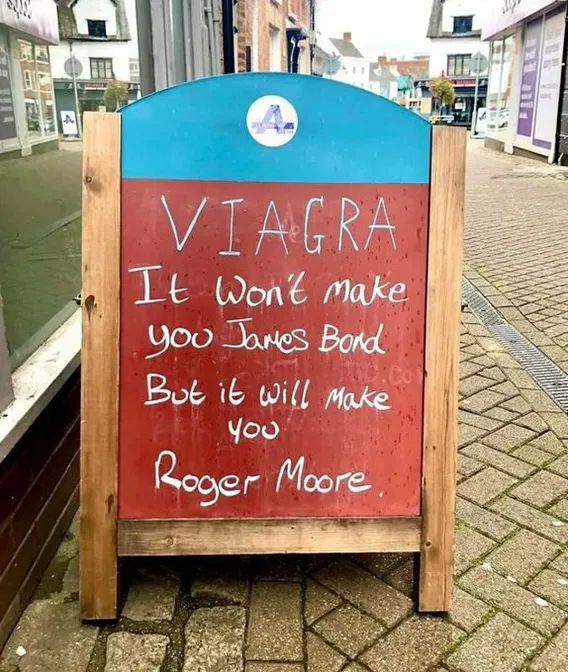 VIAGRA
It won't make
you James Bond
But it will make
you
Roger Moore.